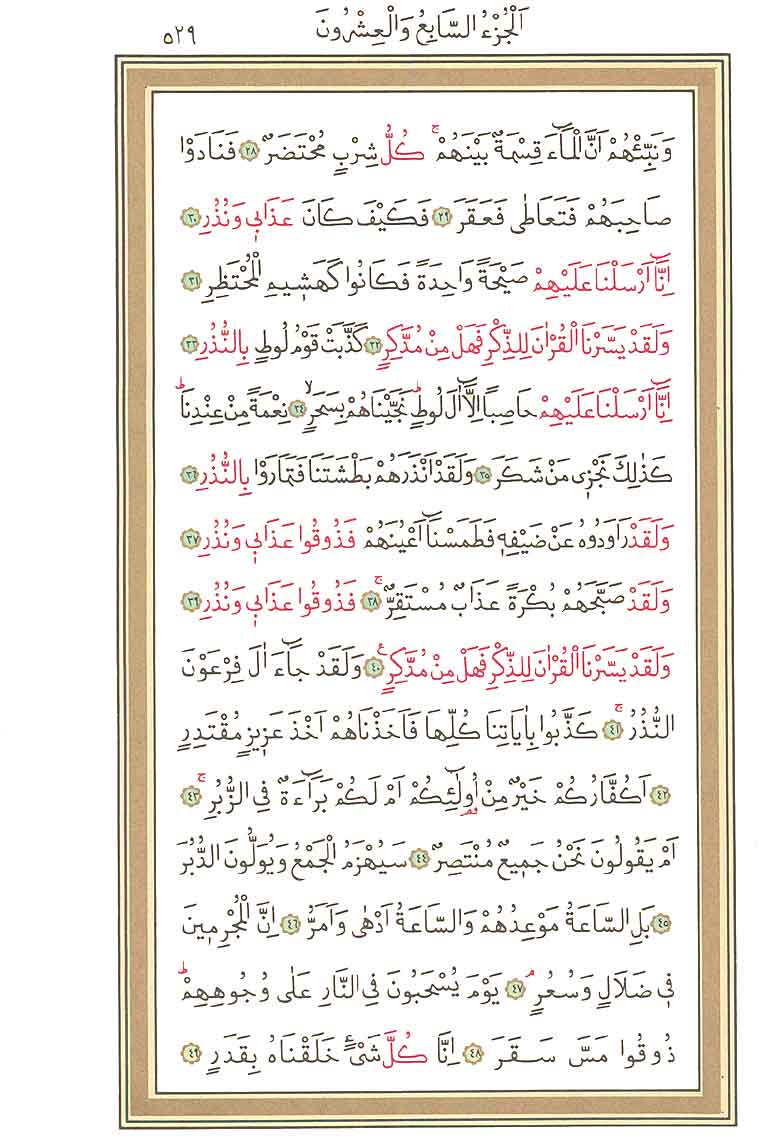 اَلْجُزْءُ السَّابِعُ وَالْعِشْرُونَ
٥٢٩
وَنَبِّئْهُمْ اَنَّ الْمَٓاءَ قِسْمَةٌ بَيْنَهُمْۚ كُلُّ شِرْبٍ مُحْتَضَرٌ ﴿٢٨﴾ فَنَادَوْا
صَاحِبَهُمْ فَتَعَاطٰى فَعَقَرَ ﴿٢٩﴾ فَكَيْفَ كَانَ عَذَابٖي وَنُذُرِ ﴿٣٠﴾
اِنَّٓا اَرْسَلْنَا عَلَيْهِمْ صَيْحَةً وَاحِدَةً فَكَانُوا كَهَشٖيمِ الْمُحْتَظِرِ ﴿٣١﴾
وَلَقَدْ يَسَّرْنَا الْقُرْاٰنَ لِلذِّكْرِ فَهَلْ مِنْ مُدَّكِرٍ ﴿٣٢﴾ كَذَّبَتْ قَوْمُ لُوطٍ بِالنُّذُرِ ﴿٣٣﴾
اِنَّٓا اَرْسَلْنَا عَلَيْهِمْ حَاصِبًا اِلَّٓا اٰلَ لُوطٍؕ نَجَّيْنَاهُمْ بِسَحَرٍۙ ﴿٣٤﴾ نِعْمَةً مِنْ عِنْدِنَاؕ
كَذٰلِكَ نَجْزٖي مَنْ شَكَرَ ﴿٣٥﴾ وَلَقَدْ اَنْذَرَهُمْ بَطْشَتَنَا فَتَمَارَوْا بِالنُّذُرِ ﴿٣٦﴾
وَلَقَدْ رَاوَدُوهُ عَنْ ضَيْفِهٖ فَطَمَسْنَٓا اَعْيُنَهُمْ فَذُوقُوا عَذَابٖي وَنُذُرِ ﴿٣٧﴾
وَلَقَدْ صَبَّحَهُمْ بُكْرَةً عَذَابٌ مُسْتَقِرٌّۚ ﴿٣٨﴾ فَذُوقُوا عَذَابٖي وَنُذُرِ ﴿٣٩﴾
وَلَقَدْ يَسَّرْنَا الْقُرْاٰنَ لِلذِّكْرِ فَهَلْ مِنْ مُدَّكِرٍ ﴿٤٠﴾ وَلَقَدْ جَٓاءَ اٰلَ فِرْعَوْنَ
النُّذُرُۚ ﴿٤١﴾ كَذَّبُوا بِاٰيَاتِنَا كُلِّهَا فَاَخَذْنَاهُمْ اَخْذَ عَزٖيزٍ مُقْتَدِرٍ
﴿٤٢﴾ اَكُفَّارُكُمْ خَيْرٌ مِنْ اُو۬لٰٓئِكُمْ اَمْ لَكُمْ بَرَٓاءَةٌ فِي الزُّبُرِۚ ﴿٤٣﴾
اَمْ يَقُولُونَ نَحْنُ جَمٖيعٌ مُنْتَصِرٌ ﴿٤٤﴾ سَيُهْزَمُ الْجَمْعُ وَيُوَلُّونَ الدُّبُرَ
﴿٤٥﴾ بَلِ السَّاعَةُ مَوْعِدُهُمْ وَالسَّاعَةُ اَدْهٰى وَاَمَرُّ ﴿٤٦﴾ اِنَّ الْمُجْرِمٖينَ
فٖي ضَلَالٍ وَسُعُرٍۢ ﴿٤٧﴾ يَوْمَ يُسْحَبُونَ فِي النَّارِ عَلٰى وُجُوهِهِمْؕ
ذُوقُوا مَسَّ سَقَرَ ﴿٤٨﴾ اِنَّا كُلَّ شَيْءٍ خَلَقْنَاهُ بِقَدَرٍ ﴿٤٩﴾